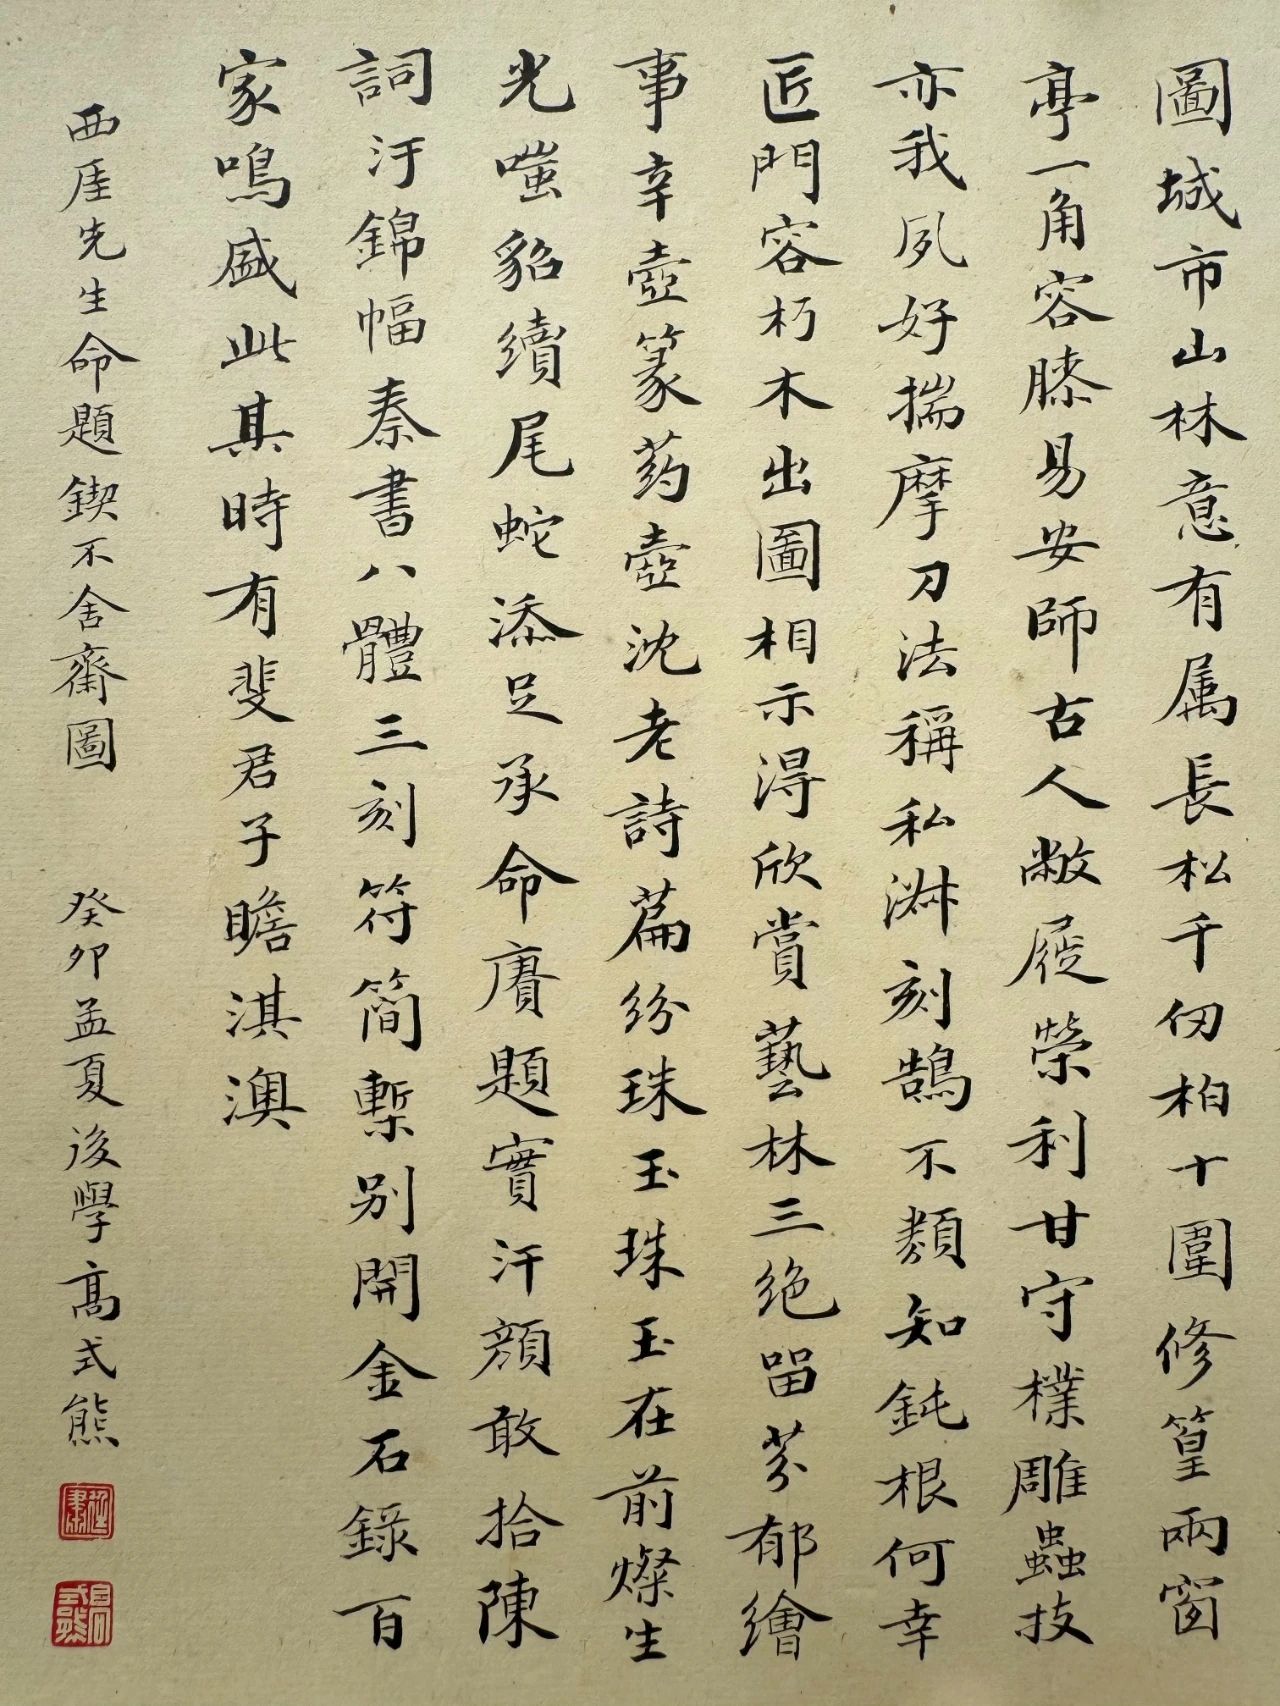 圖城市山林意有属長松千仞柏十圍修篁兩窗
亭一角容膝易安師古人敝屣榮利甘守樸雕蟲技
亦我夙好揣摩刀法稱私淑刻鵠不類知鈍根何幸
匠門容朽木出圖相示得欣賞藝林三绝留芬郁繪
事辛壺篆药壺沈老詩篇纷珠玉珠玉在前燦生
光嗤貂續尾蛇添足承命賡題實汗顔敢拾陳
詞汙錦幅秦書八體三刻符簡槧别開金石錄百
家鳴盛此其時有斐君子瞻淇澳
西厓先生命題鍥不舍齋圖 癸卯孟夏後學高式熊